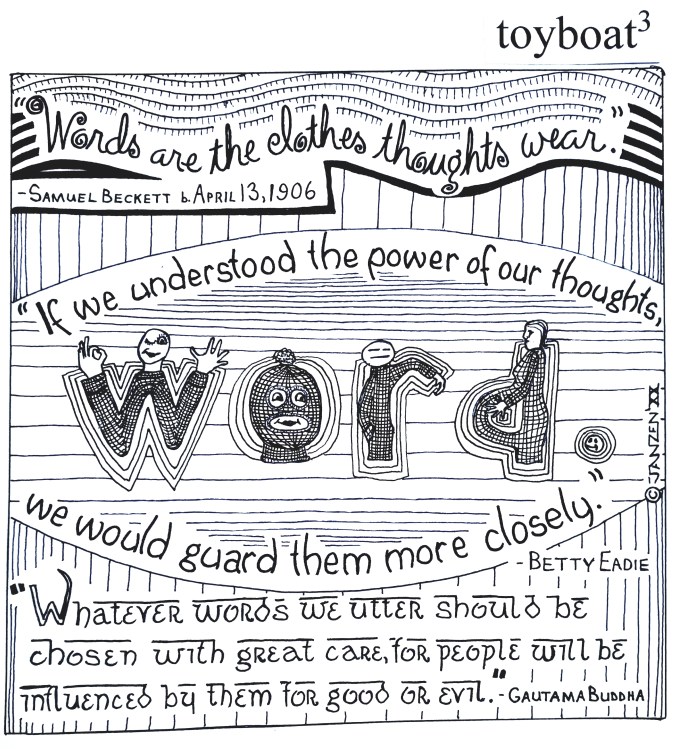 toyboat³
"Words are the clothes thoughts wear."
-SAMUEL BECKETT b. APRIL 13, 1906
"If we understood the power of our thoughts,
word.
we would guard them more closely."
-BETTY EADIE
"Whatever words we utter should be
chosen with great care, for people will be
influenced by them for good or evil." -GAUTAMA BUDDHA
© JANZEN XX